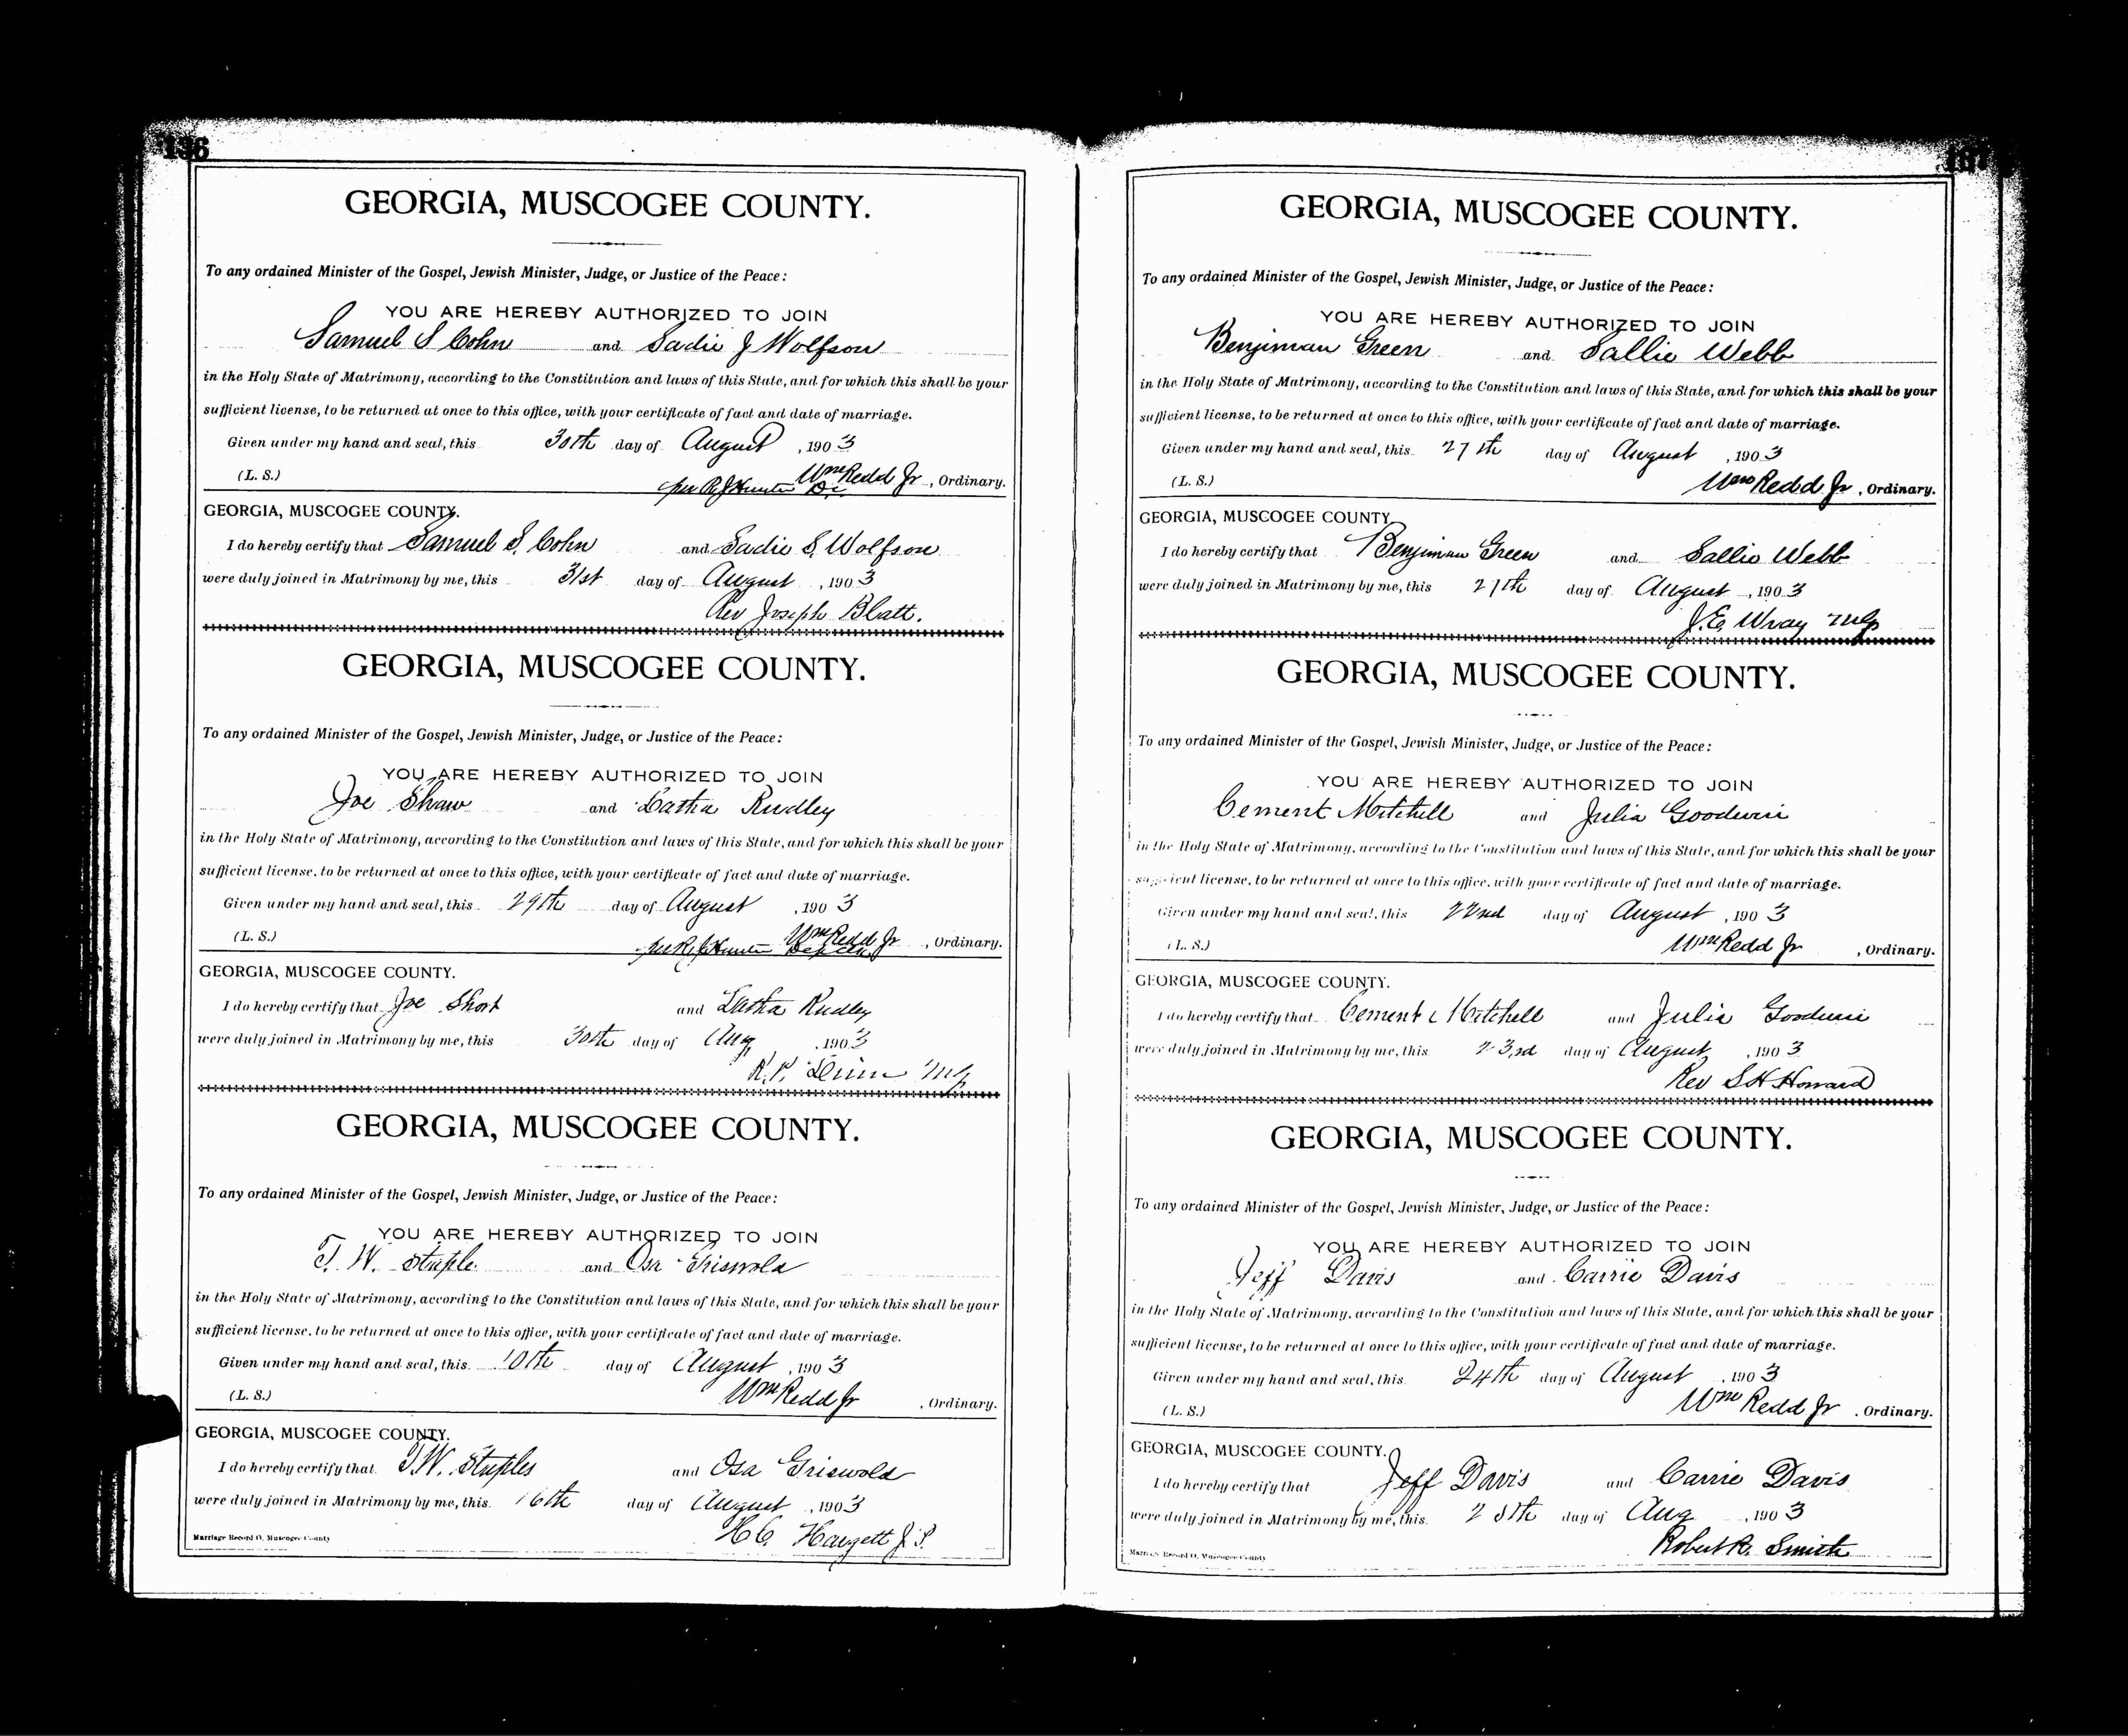 136
GEORGIA, MUSCOGEE COUNTY.
To any ordained Minister of the Gospel, Jewish Minister, Judge, or Justice of the Peace:
YOU ARE HEREBY AUTHORIZED TO JOIN
Samuel S Cohn and Sadie J Wolfson
in the Holy State of Matrimony, according to the Constitution and laws of this State, and for which this shall be your
sufficient license, to be returned at once to this office, with your certificate of fact and date of marriage.
Given under my hand and seal, this 30th day of August, 1903
(L. S.) Wm Redd Jr, Ordinary.
per R J Hunter D.C.
GEORGIA, MUSCOGEE COUNTY.
I do hereby certify that Samuel S. Cohn and Sadie S. Wolfson
were duly joined in Matrimony by me, this 31st day of August, 1903
Rev Joseph Blatt.
GEORGIA, MUSCOGEE COUNTY.
To any ordained Minister of the Gospel, Jewish Minister, Judge, or Justice of the Peace:
YOU ARE HEREBY AUTHORIZED TO JOIN
Joe Shaw and Latha Rudley
in the Holy State of Matrimony, according to the Constitution and laws of this State, and for which this shall be your
sufficient license, to be returned at once to this office, with your certificate of fact and date of marriage.
Given under my hand and seal, this 29th day of August, 1903
(L. S.) Wm Redd Jr, Ordinary.
per R J Hunter
GEORGIA, MUSCOGEE COUNTY.
I do hereby certify that Joe Short and Latha Rudley
were duly joined in Matrimony by me, this 30th day of Aug, 1903
GEORGIA, MUSCOGEE COUNTY.
To any ordained Minister of the Gospel, Jewish Minister, Judge, or Justice of the Peace:
YOU ARE HEREBY AUTHORIZED TO JOIN
T. W. Staple and Osa Griswold
in the Holy State of Matrimony, according to the Constitution and laws of this State, and for which this shall be your
sufficient license, to be returned at once to this office, with your certificate of fact and date of marriage.
Given under my hand and seal, this 10th day of August, 1903
(L. S.) Wm Redd Jr, Ordinary.
GEORGIA, MUSCOGEE COUNTY.
I do hereby certify that T.W. Staples and Osa Griswold
were duly joined in Matrimony by me, this 16th day of August, 1903
H C. Hargett J.P.
Marriage Record O, Muscogee County
GEORGIA, MUSCOGEE COUNTY.
To any ordained Minister of the Gospel, Jewish Minister, Judge, or Justice of the Peace:
YOU ARE HEREBY AUTHORIZED TO JOIN
Benjiman Green and Sallie Webb
in the Holy State of Matrimony, according to the Constitution and laws of this State, and for which this shall be your
sufficient license, to be returned at once to this office, with your certificate of fact and date of marriage.
Given under my hand and seal, this 27th day of August, 1903
(L. S.) Wm Redd Jr, Ordinary.
GEORGIA, MUSCOGEE COUNTY
I do hereby certify that Benjiman Green and Sallie Webb
were duly joined in Matrimony by me, this 27th day of August, 1903
J.E. Wray MG
GEORGIA, MUSCOGEE COUNTY.
To any ordained Minister of the Gospel, Jewish Minister, Judge, or Justice of the Peace:
YOU ARE HEREBY AUTHORIZED TO JOIN
Cement Mitchell and Julia Goodwin
in the Holy State of Matrimony, according to the Constitution and laws of this State, and for which this shall be your
sufficient license, to be returned at once to this office, with your certificate of fact and date of marriage.
Given under my hand and seal, this 22nd day of August, 1903
(L. S.) Wm Redd Jr, Ordinary.
GEORGIA, MUSCOGEE COUNTY.
I do hereby certify that Cement Mitchell and Julia Goodwin
were duly joined in Matrimony by me, this 23rd day of August, 1903
Rev S H Howard
GEORGIA, MUSCOGEE COUNTY.
To any ordained Minister of the Gospel, Jewish Minister, Judge, or Justice of the Peace:
YOU ARE HEREBY AUTHORIZED TO JOIN
Jeff Davis and Carrie Davis
in the Holy State of Matrimony, according to the Constitution and laws of this State, and for which this shall be your
sufficient license, to be returned at once to this office, with your certificate of fact and date of marriage.
Given under my hand and seal, this 24th day of August, 1903
(L. S.) Wm Redd Jr. Ordinary.
GEORGIA, MUSCOGEE COUNTY.
I do hereby certify that Jeff Davis and Carrie Davis
were duly joined in Matrimony by me, this day of Aug, 1903
Robert R. Smith
Marriage Record O, Muscogee County